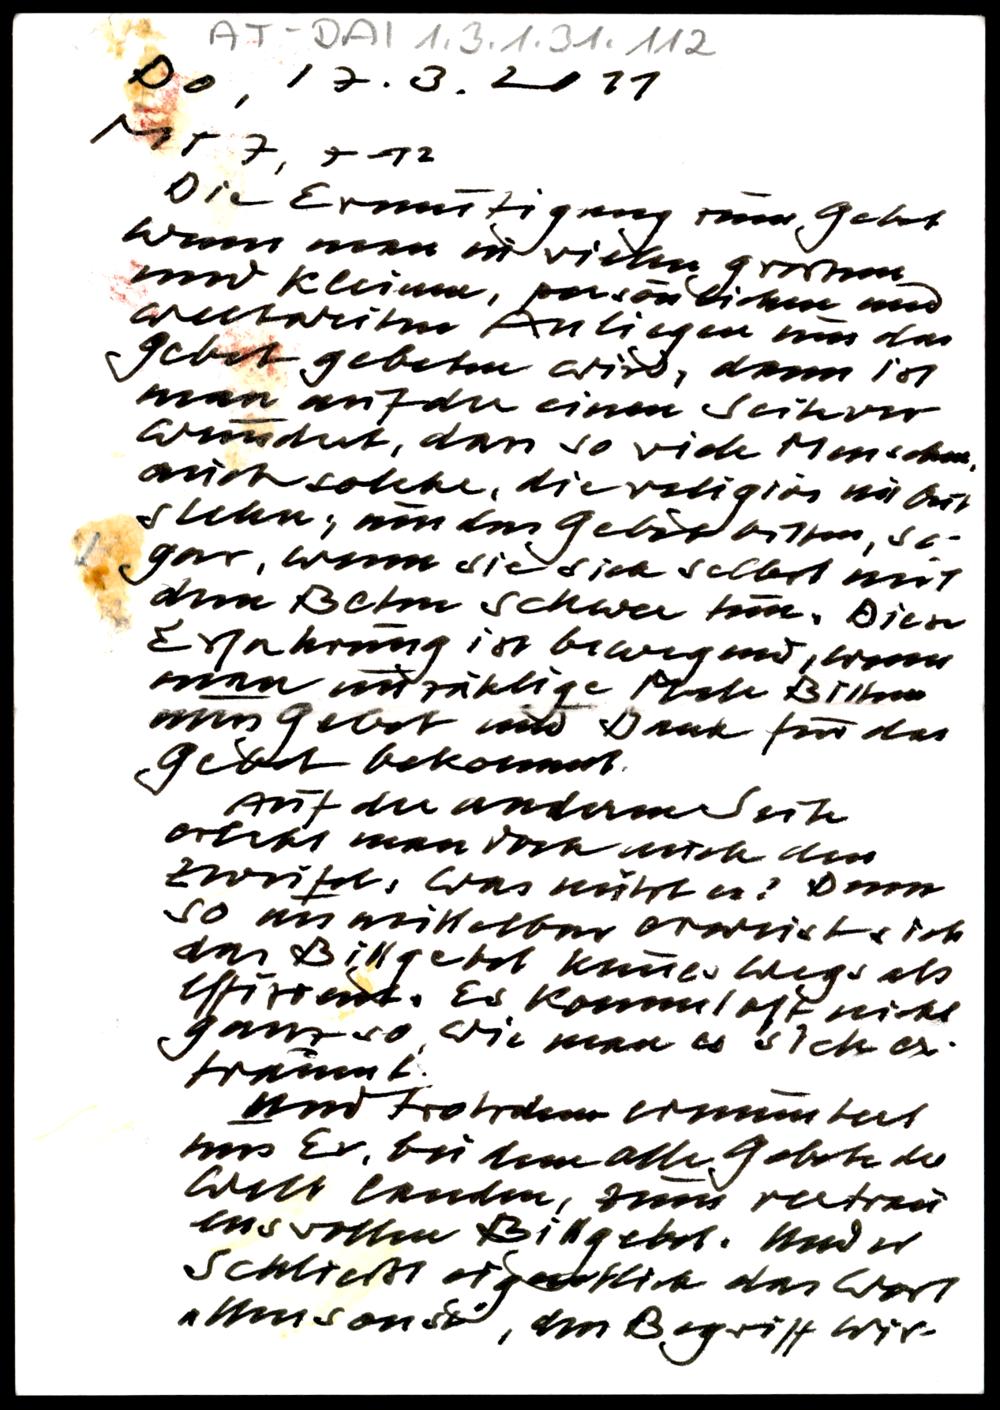 AT-DAI 1.3.1.31.112
Do, 17.3.2011
Mt 7, 7-12
Die Ermutigung zum Gebet
Wenn man in vielen grossen
und kleinen, persönlichen und
weltweiten Anliegen um das
Gebet gebeten wird, dann ist
man auf der einen Seite ver
wundert, dass so viele Menschen,
auch solche, die religiös
stehen, um das Gebet bitten, so-
gar, wenn sie sich selbst mit
dem Beten schwer tun. Diese
Erfahrung ist bewegend, wenn
man unzählige Male Bitten
ums Gebet und Dank für das
Gebet bekommt.
Auf der anderen Seite
erlebt man doch auch den
Zweifel. Was nützt es? Denn
so unmittelbar erweist sich
das Bittgebet keineswegs als
effizient. Es kommt oft nicht
ganz so, wie man es sich er-
träumt.
Und trotzdem ermuntert
uns Er, bei dem alle Gebete der
Welt landen, zum vertrau
ensvollen Bittgebet. Und er
schließt eigentlich das Wort
"Umsonst", den Begriff Wir-